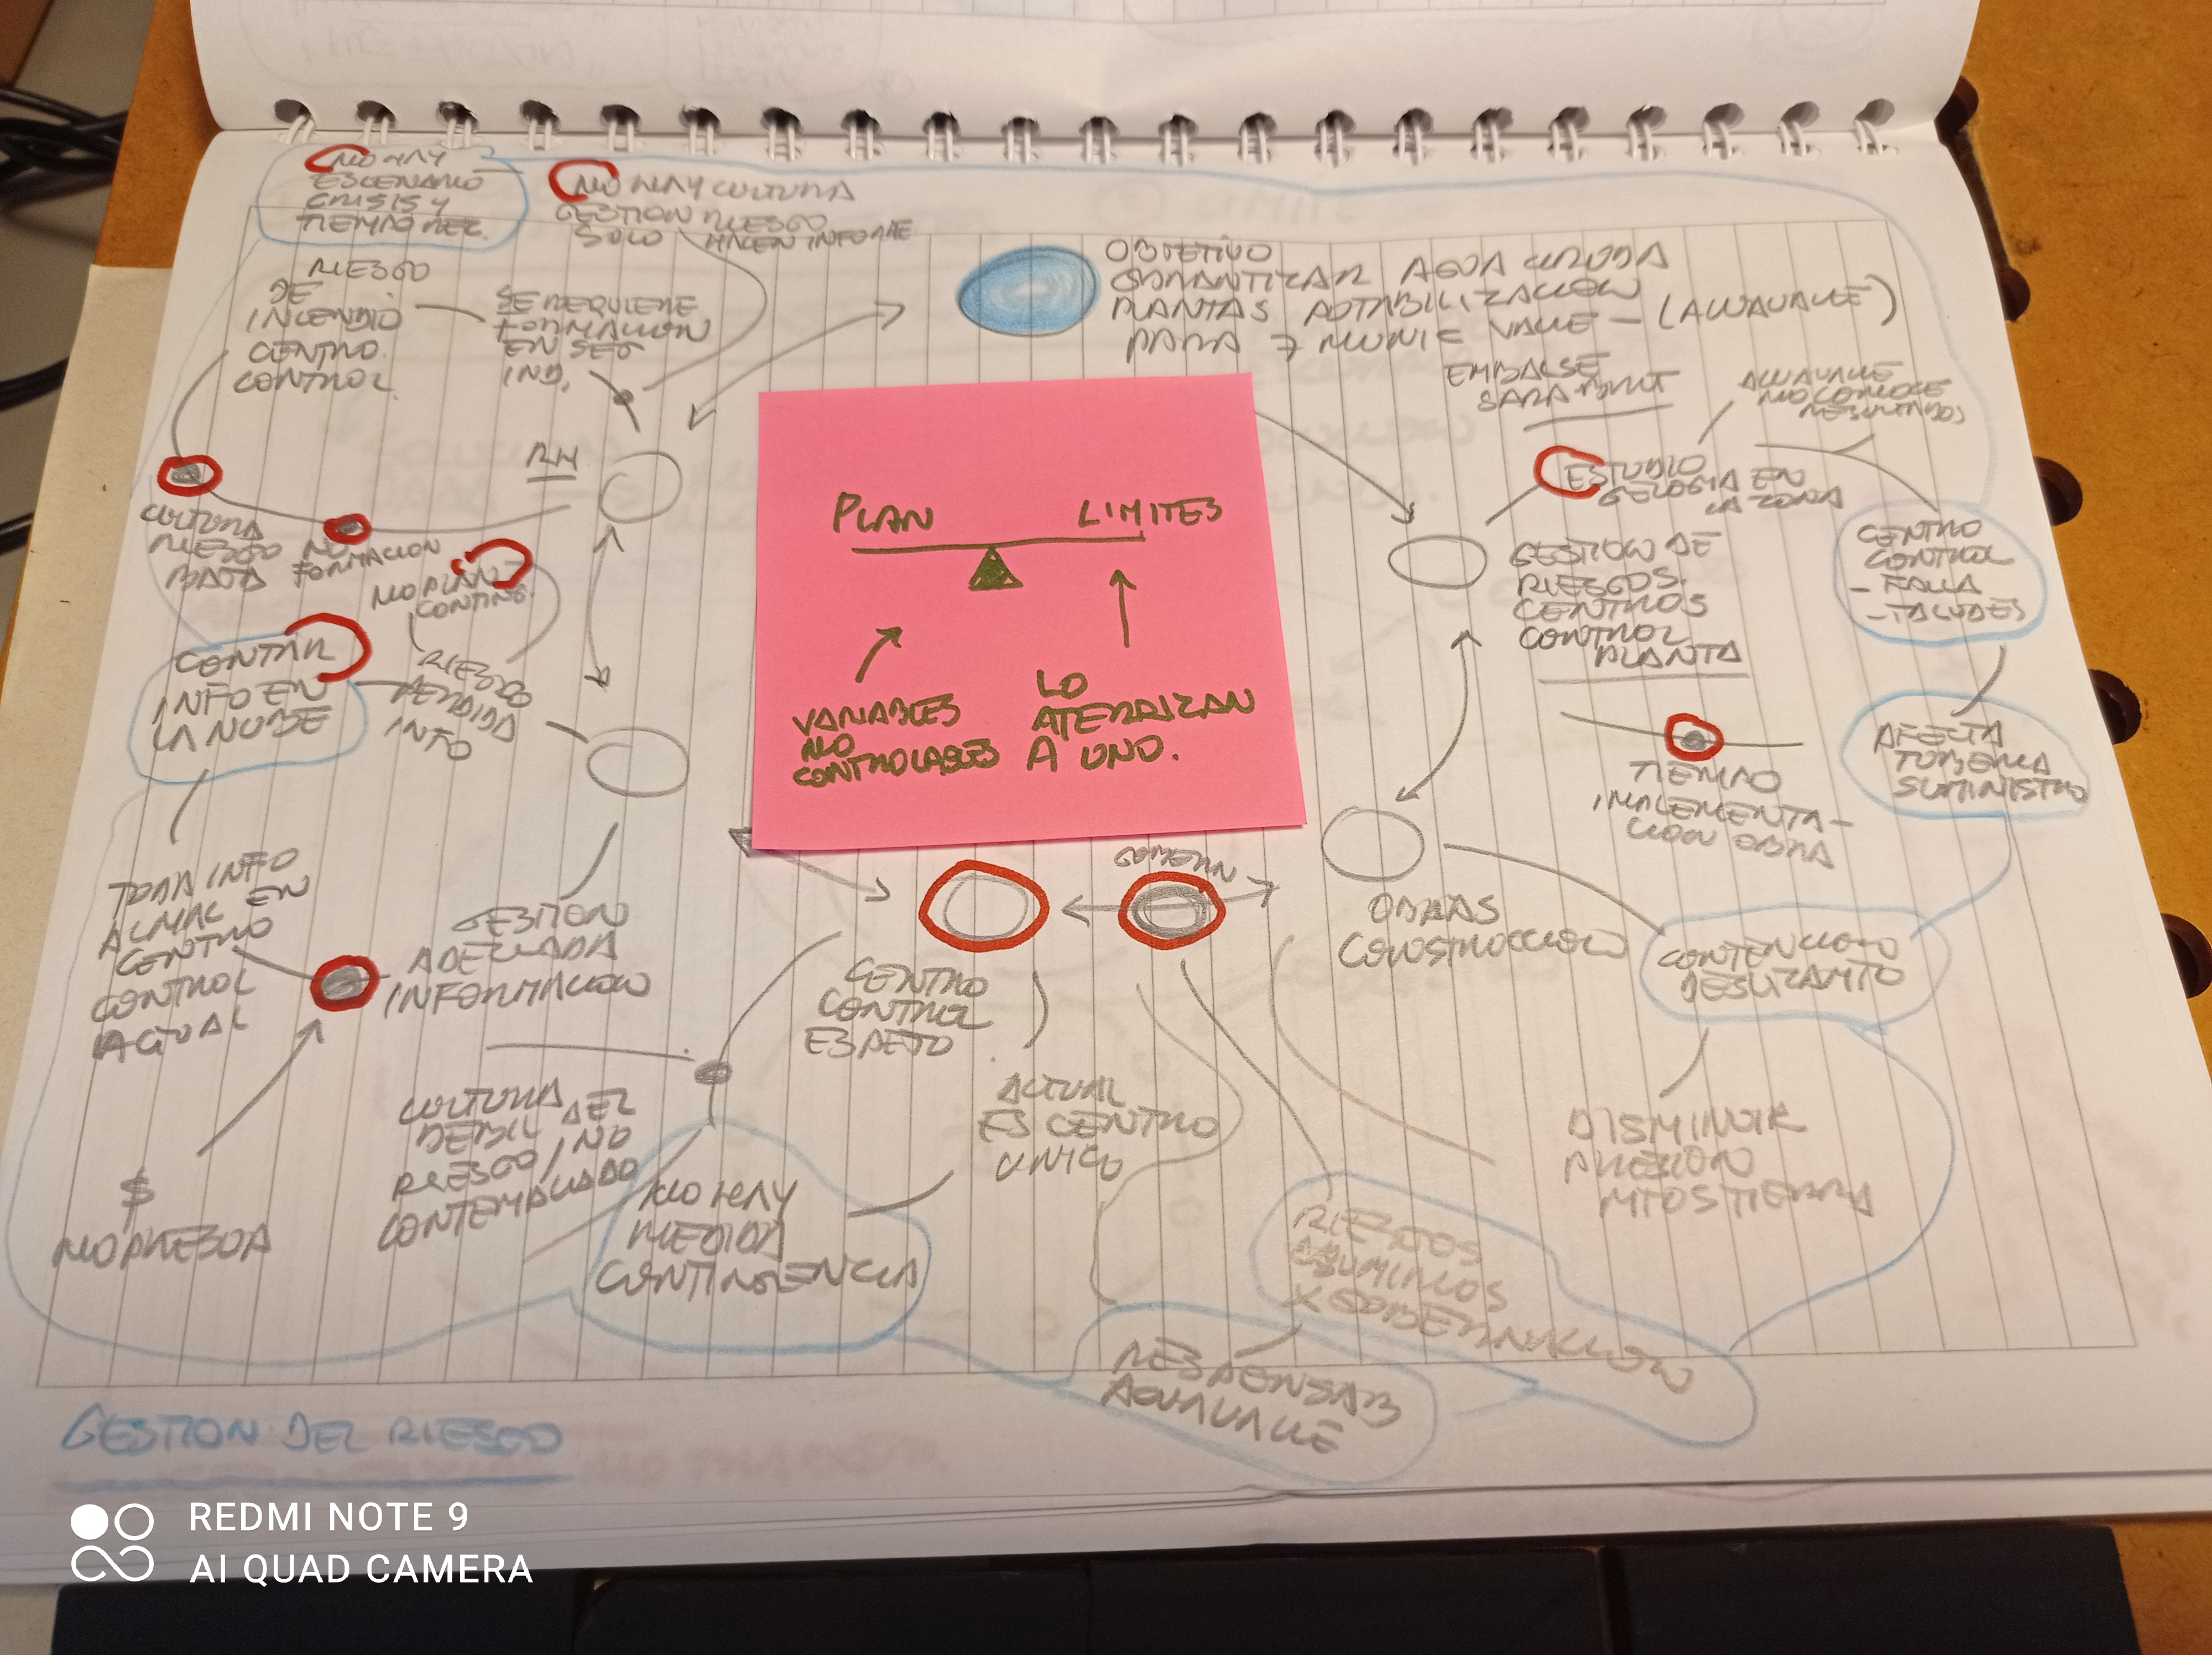 NO HAY
ESCENARIO
CRISIS Y
TIEMPO REC.
NO HAY CULTURA
GESTION RIESGO
SOLO HACEN INFORME
RIESGO
DE
INCENDIO
CENTRO
CONTROL
SE REQUIERE
FORMACION
EN SEG
IND.
OBJETIVO
GARANTIZAR AGUA CRUDA
PLANTAS POTABILIZACION
PARA 7 MUNIC VALLE - (ACUAVALLE)
EMBALSE
SARA BRUT
ACUAVALLE
NO CONOCE
RESULTADOS
RH
ESTUDIO
GELOGIA EN
LA ZONA
CULTURA
RIESGO
BAJA
NO
FORMACION
NO PLAN
CONTING.
PLAN
LIMITES
VARIABLES
NO
CONTROLABLES
LO
ATERRIZAN
A UNO.
GESTION DE
RIESGOS.
CENTROS
CONTROL
PLANTA
CENTRO
CONTROL
- FALLA
- TALUDES
CONTAR
INFO EN
LA NUBE
RIESGO
PERDIDA
INFO
TIEMPO
IMPLEMENTA-
CION OBRA
AFECTA
TUBERIA
SUMINISTRO
TODA INFO
ALMAC EN
CENTRO
CONTROL
ACTUAL
GESTION
ADECUADA
INFORMACION
GOBERN
CENTRO
CONTROL
ESPEJO
OBRAS
CONSTRUCCION
CONTENCION
DESLIZAMTO
ACTUAL
ES CENTRO
UNICO
CULTURA
DEBIL DEL
RIESGO / NO
CONTEMPLADO
DISMINUIR
PRESION
MTOS TIERRA
$
NO PRESUA
NO HAY
MEDIDA
CONTINGENCIA
RIESGOS
ASUMIMOS
X GOBERNACION
RESPONSAB
AGUAVALLE
GESTION DEL RIESGO
REDMI NOTE 9
AI QUAD CAMERA